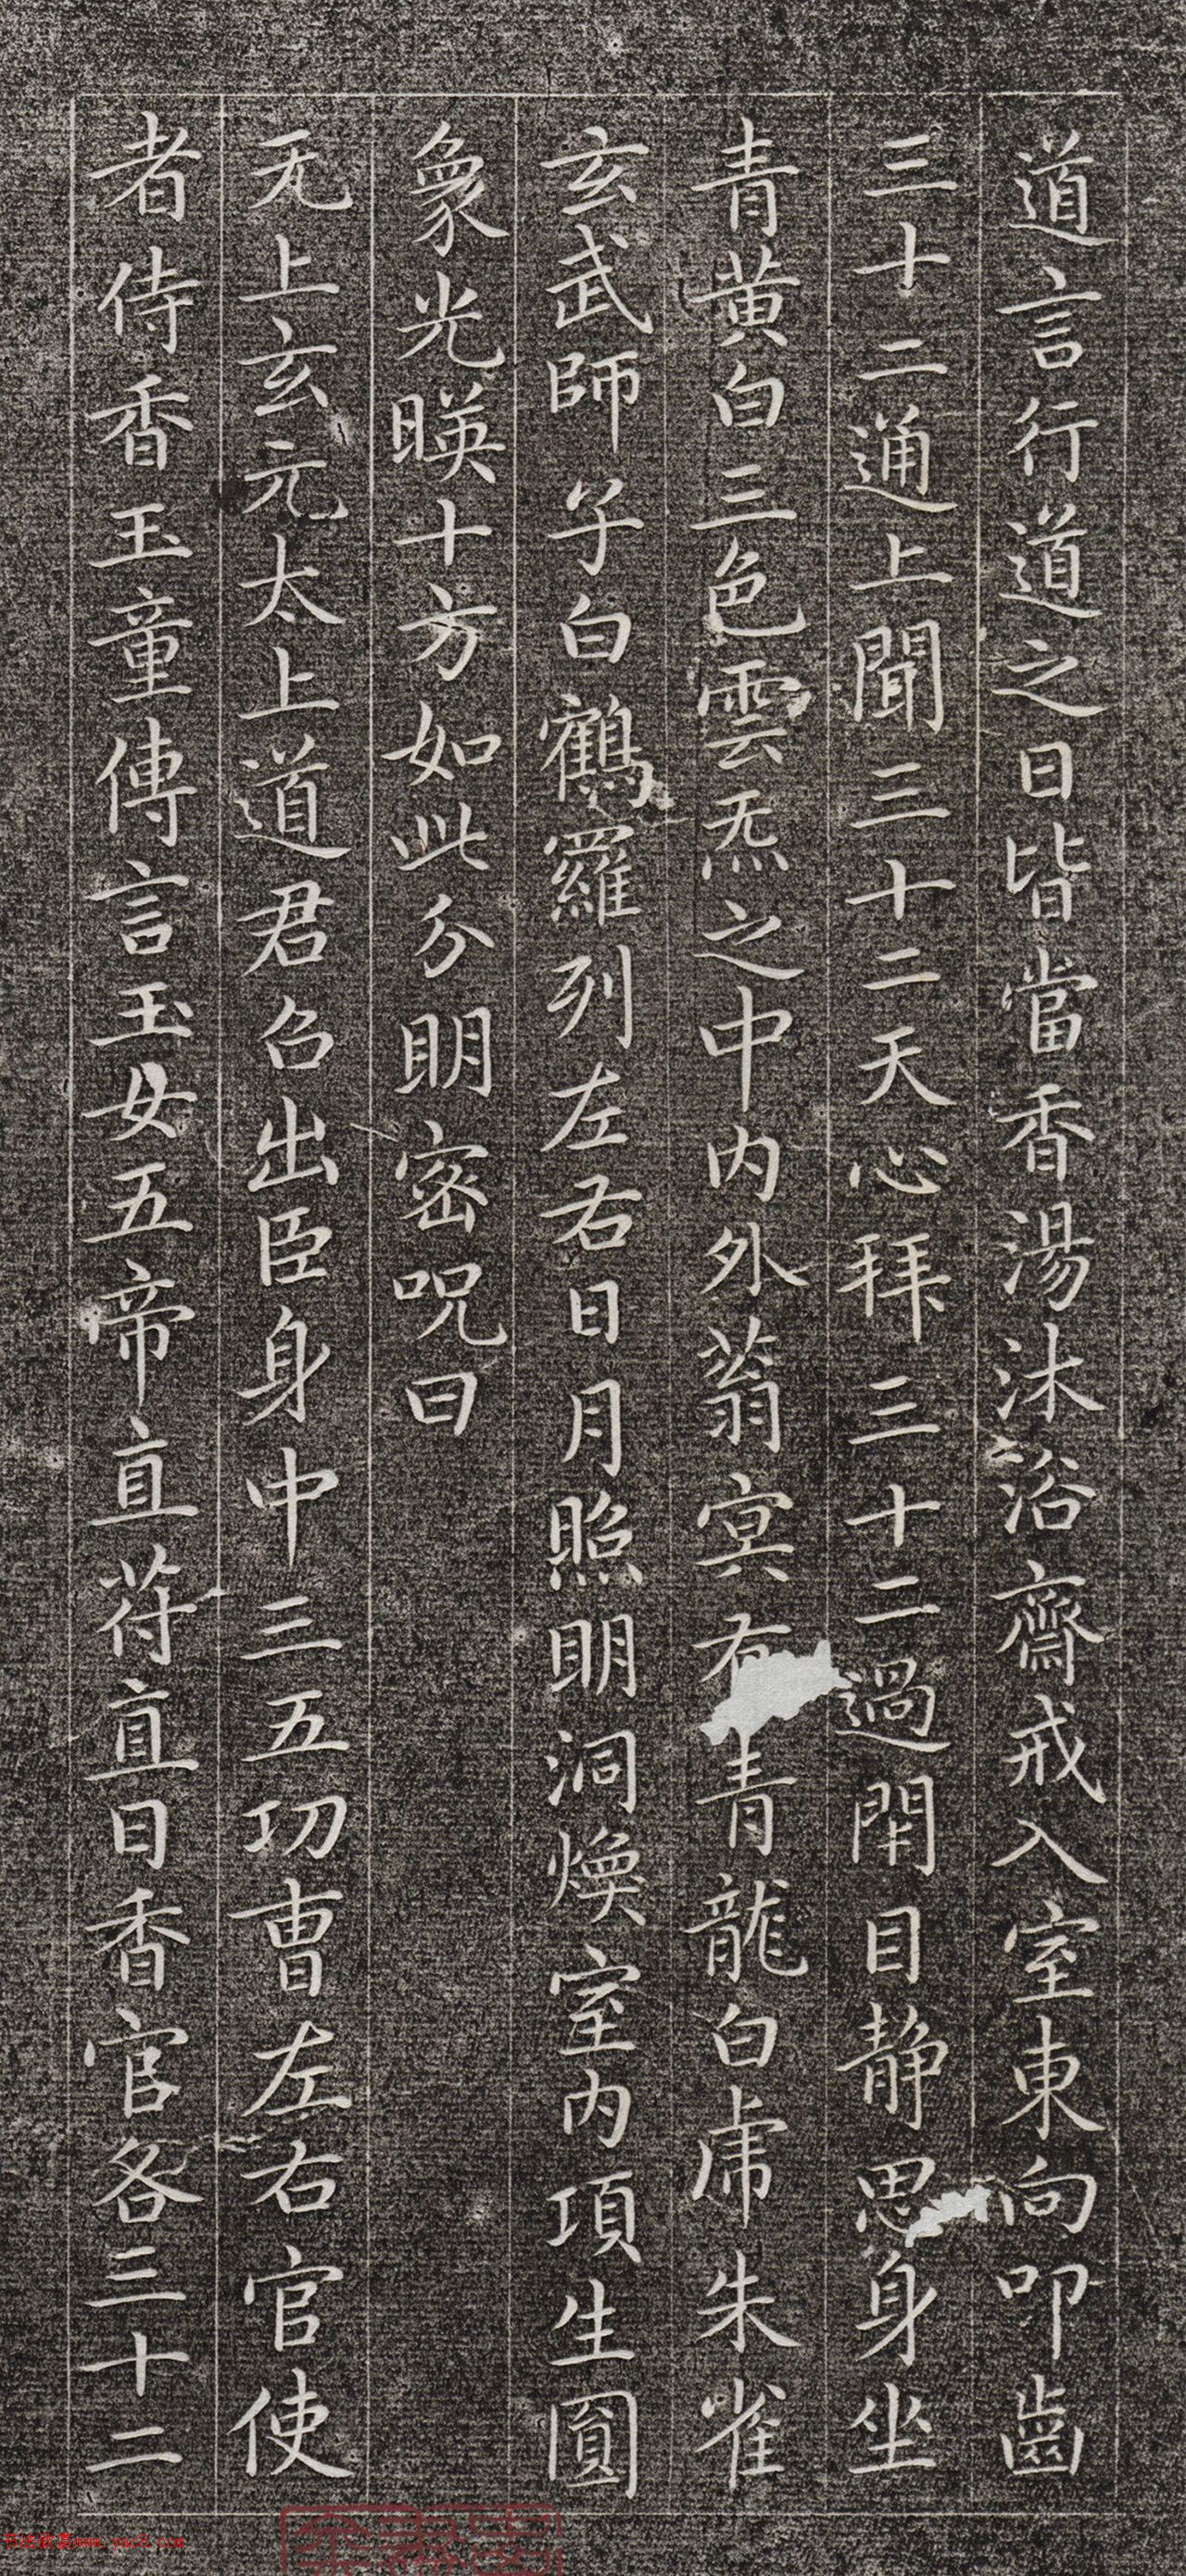 道言行道之日皆當香湯沐浴齋戒入室東向叩齒
三十二通上聞三十二天心拜三十二過閇目静思身坐
青黄白三色雲炁之中内外蓊冥有青龍白虎朱雀
玄武師子白鶴羅列左右日月照明洞煥室内項生圓
象光暎十方如此分明密咒曰
无上玄元太上道君召出臣身中三五功曹左右官使
者侍香玉童傳言玉女五帝直苻直日香官各三十二